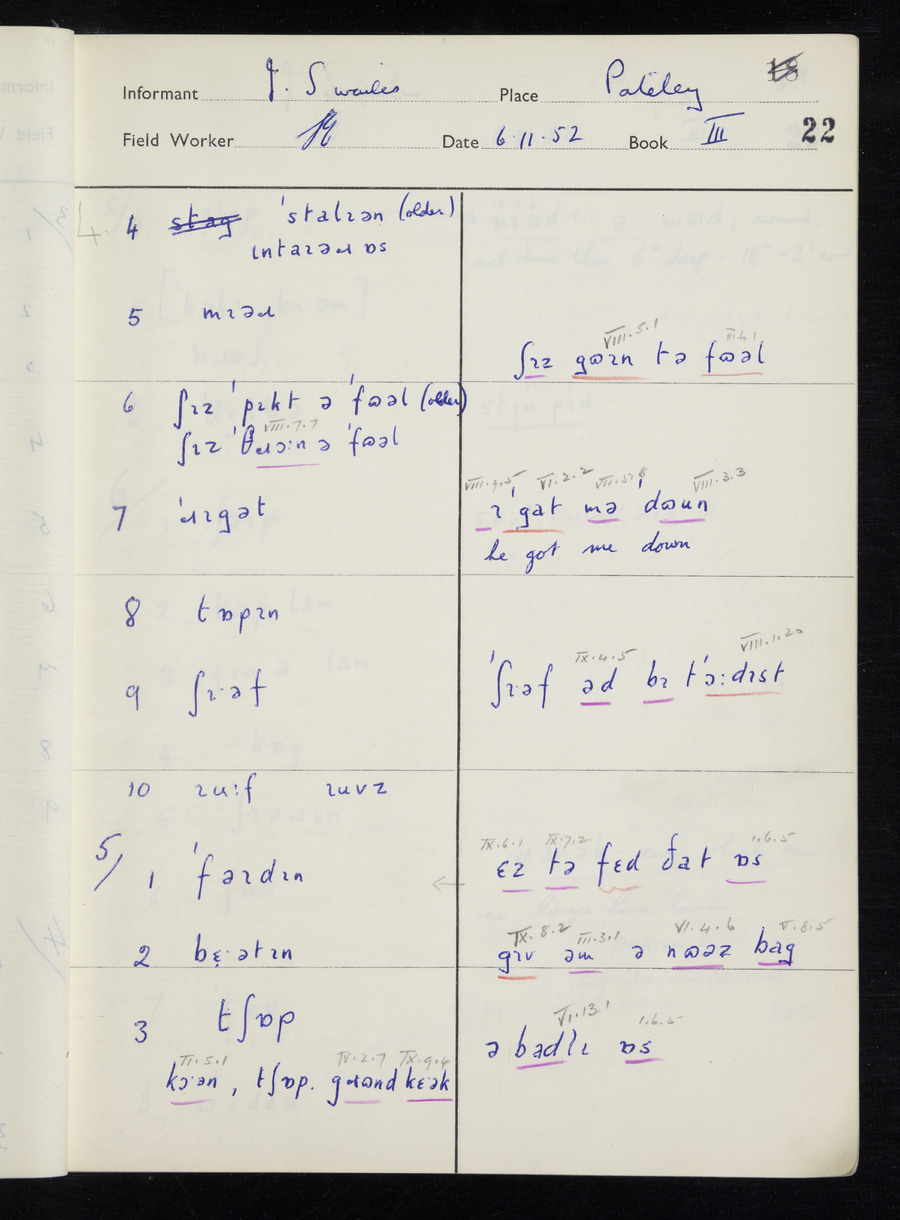 Informant J. Swailes Place Pateley 18
Field Worker Date 6.11.52 Book III 22
4 stag ˈstalɪən (older)
ɩntaɪəɹ ɒs
5 mɪəɹ
VIII.5.1 III.4.1
ʃɪz gɷɪn tə fɷəl
6 ʃɪz ˈpɪkt ə ˈfɷəl (older)
VIII.7.7
ʃɪz ˈθɹɔ:n ə ˈfɷəl
VIII.9.5 VI.2.2 VII.5.8 VIII.3.3
7 ˈɹɪgət ɪ ˈgat mə ˈdɷun
he got me down
8 tɒpɪn
IX.4.5 VIII.1.20
9 ʃɪ·əf ˈʃɪ·əf əd bɪ tˈɔ:dɪst
10 ɪu:f ɪuvz
5/ IX.6.1 IX.7.2 1.6.5
1 ˈfaɪdɪn ← ɛz tə fɛd ðat ɒs
IX.8.2 III.3.1 VI.4.6 V.8.5
2 bɛ·ətɪn gɪv əm ə nɷəz bag
3 tʃɒp
VI.13.1 1.6.5
ə badlɪ ɒs
II.5.1 IV.2.7 IX.9.4
kɔ·ən, tʃɒp. gɹɷnd kɛək